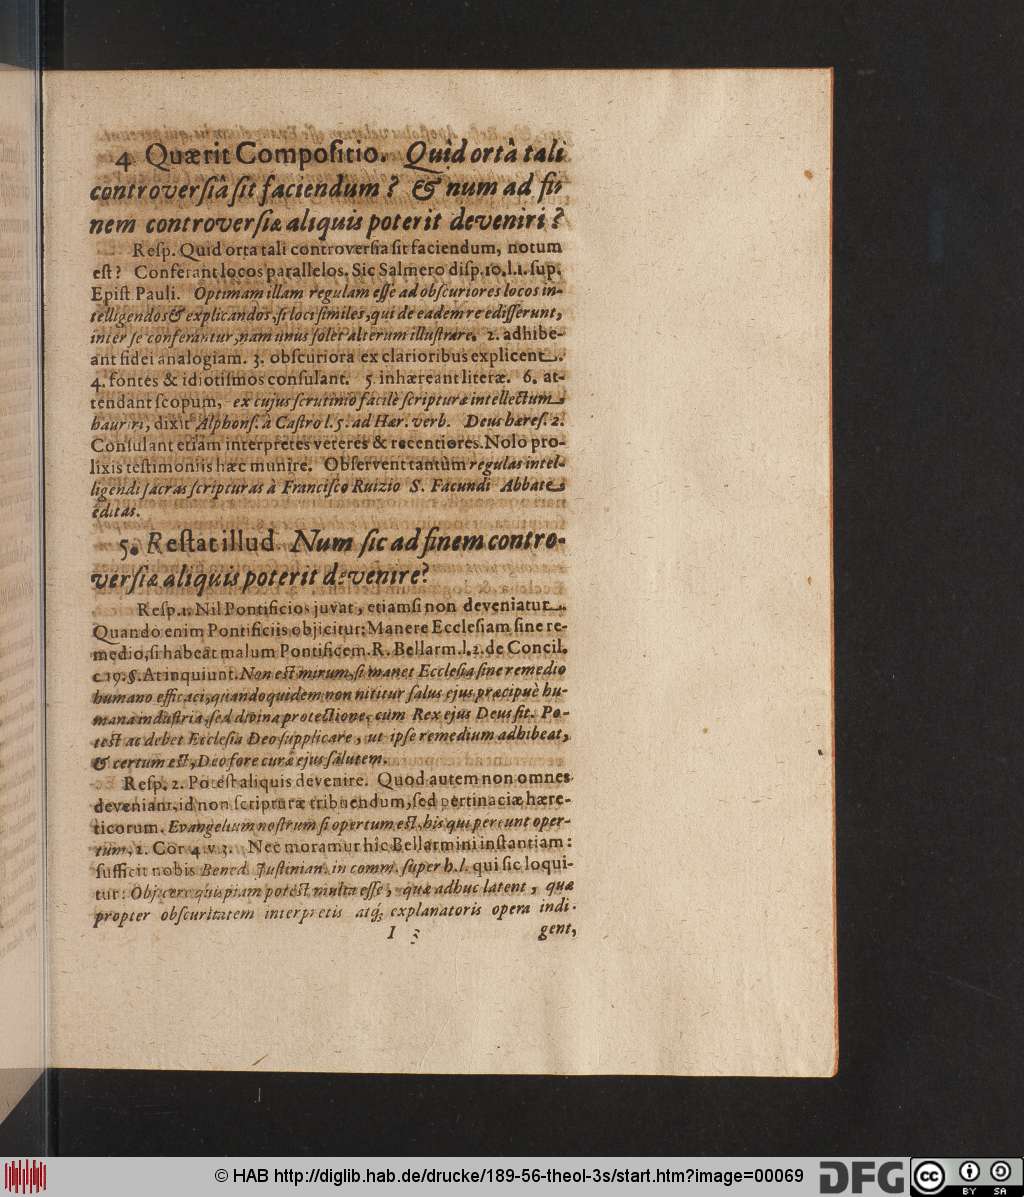 4. Quærit Compoſitio. Quid ortâ tali
controverſiâ ſit faciendum? & num ad fi-
nem controverſiæ aliquis poterit deveniri?
Reſp. Quid orta tali controverſia ſit faciendum, notum
eſt? Conferant locos parallelos. Sic Salmero diſp. 10. l. 1. ſup.
Epiſt Pauli. Optimam illam regulam eſſe ad obſcuriores locos in-
telligendos & explicandos, ſi loci ſimiles, qui de eadem re ediſſerunt,
inter ſe conferantur, nam unus ſolet alterum illuſtrare. 2. adhibe-
ant fidei analogiam. 3. obſcuriora ex clarioribus explicent.
4. fontes & idiotiſmos conſulant. 5. inhæreant literæ. 6. at-
tendant ſcopum, ex cujus ſcrutinio facilè ſcripturæ intellectum
hauriri, dixit Alphonſ. à Caſtro l. 5. ad Hær. verb. Deus hæreſ. 2.
Conſulant etiam interpretes veteres & recentiores. Nolo pro-
lixis teſtimoniis hæc munire. Obſervent tantùm regulas intel-
ligendi ſacras ſcripturas à Franciſco Ruizio S. Facundi Abbate
editas.
5. Reſtat illud Num ſic ad finem contro-
verſiæ aliquis poterit devenire?
Reſp. 1. Nil Pontificios juvat, etiamſi non deveniatur.
Quando enim Pontificiis objicitur: Manere Eccleſiam ſine re-
medio, ſi habeat malum Pontificem. R. Bellarm. l. 2. de Concil.
c 19. §. At inquiunt. Non eſt mirum, ſi manet Eccleſia ſine remedio
humano efficaci, quandoquidem non nititur ſalus ejus præcipuè hu-
mana induſtria, ſed divina protectione, cùm Rex ejus Deus ſit. Po-
teſt ac debet Eccleſia Deo ſupplicare, ut ipſe remedium adhibeat,
& certum eſt, Deo fore curæ ejus ſalutem.
Reſp. 2. Poteſt aliquis devenire. Quod autem non omnes
deveniant, id non ſcripturæ tribuendum, ſed pertinaciæ hære-
ticorum. Evangelium noſtrum ſi opertum eſt, his qui pereunt oper-
tum, 2. Cor 4. v. 3. Nec moramur hîc Bellarmini inſtantiam:
ſufficit nobis Bened. Juſtinian. in comm. ſuper h. l. qui ſic loqui-
tur: Objicere quiſpiam poteſt multa eſſe, quæ adhuc latent, quæ
propter obſcuritatem interpretis atq; explanatoris opera indi-
I 3 gent,
© HAB http://diglib.hab.de/drucke/189-56-theol-3s/start.htm?image=00069 DFG cc BY SA